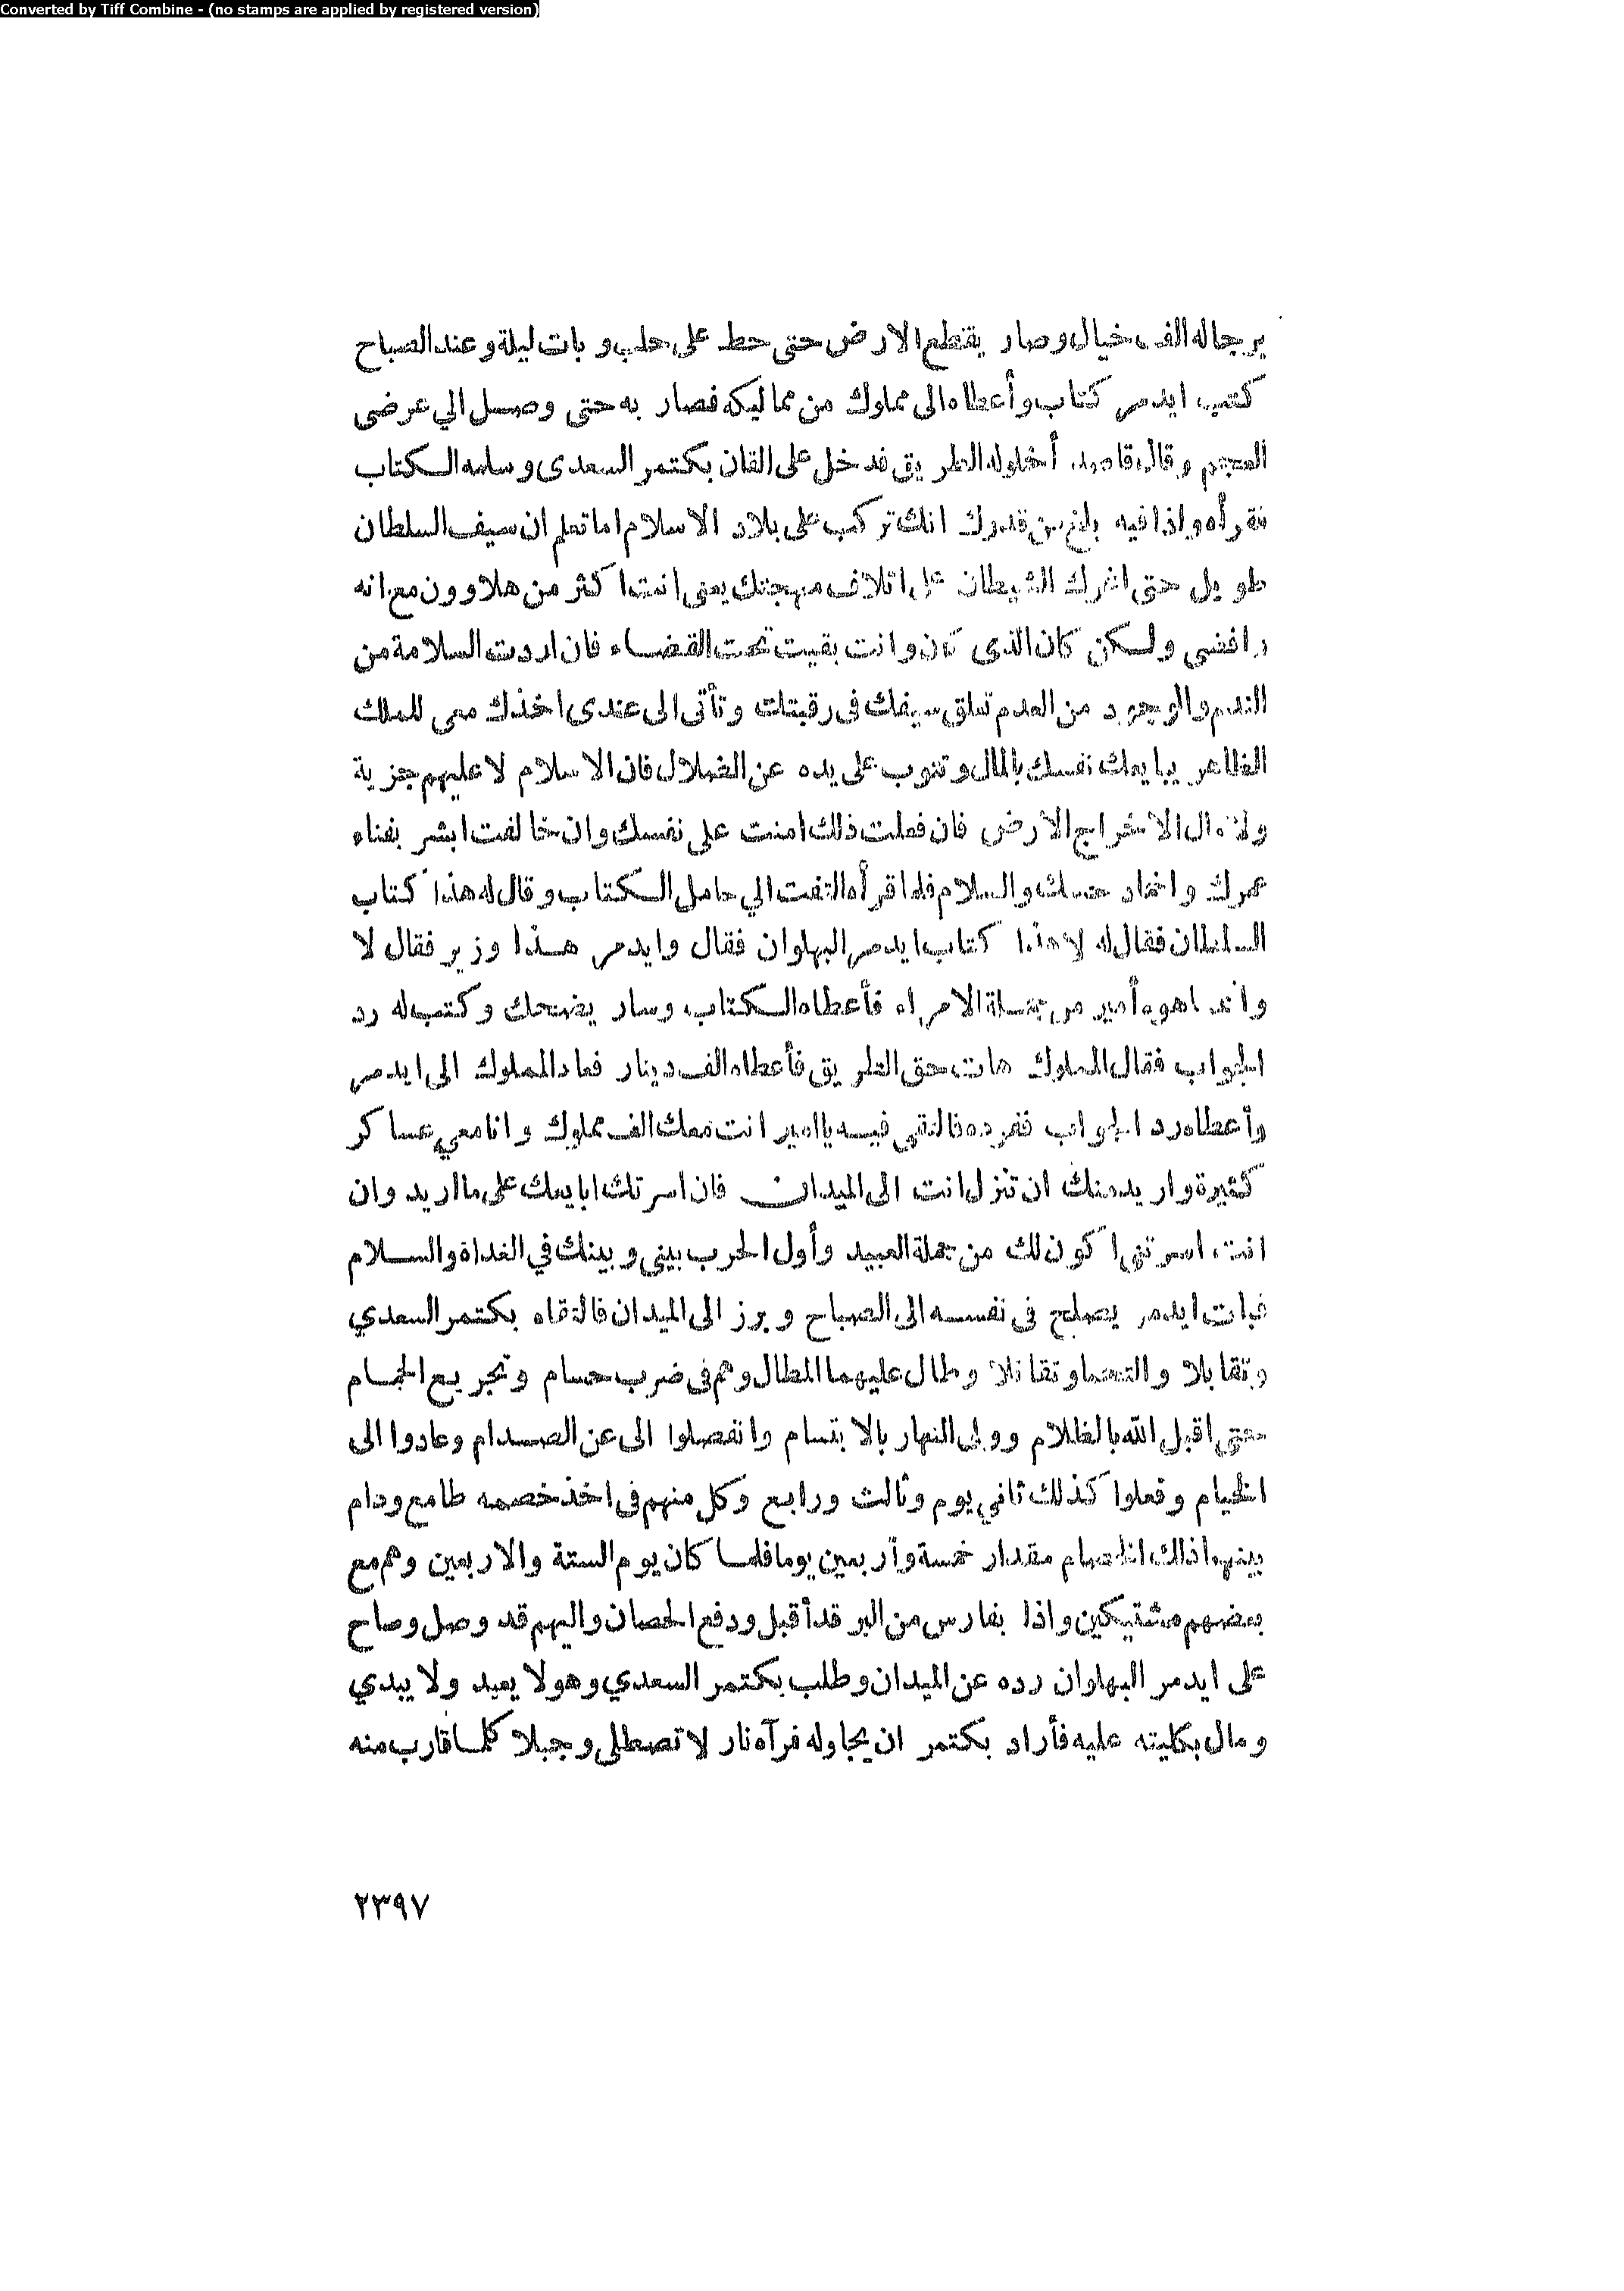 Converted by Tiff Combine - (no stamps are applied by registered version)
برجاله الف خيال وصار يقطع الارض حتى حط على حلب وبات ليلة وعند الصباح
كتب ايدمر كتاب وأعطاه الى مملوك من مماليكه فصار به حتى وصل الي عرضى
العجم وقال قاصد أخلوله الطريق فدخل على القان بكتمر السعدى وسلمه الكتاب
فقرأه واذا فيه بلغ من قدرك انك تركب على بلاد الاسلام اما تعلم ان سيف السلطان
طويل حتى اغرك الشيطان على اتلاف مهجتك يعنى انت اكثر من هلاوون مع انه
رافضى ولكن كان الذى كان وانت بقيت تحت القضاء فان اردت السلامة من
الندم والوجود من العدم تعلق سيفك فى رقبتك وتأتى الى عندى اخذك معى للملك
الظاهر يبايعك نفسك بالمال وتتوب على يده عن الضلال فان الاسلام لا عليهم جزية
ولا مال الا خراج الارض فان فعلت ذلك امنت على نفسك وان خالفت ابشر بفناء
عمرك واخماد حسك والسلام فلما قرأه التفت الي حامل الكتاب وقال له هذا كتاب
السلطان فقال له لا هذا كتاب ايدمر البهلوان فقال وايدمر هذا وزير فقال لا
وانما هو أمير من جملة الامراء فأعطاه الكتاب وسار يضحك وكتب له رد
الجواب فقال المملوك هات حق الطريق فأعطاه الف دينار فعاد المملوك الى ايدمر
وأعطاه رد الجواب ففرده فالتقى فيه يا امير انت معك الف مملوك وانا معي عساكر
كثيرة واريد منك ان تنزل انت الى الميدان فان اسرتك ابايعك على ما اريد وان
انت اسرتنى اكون لك من جملة العبيد وأول الحرب بينى وبينك في الغداة والسلام
فبات ايدمر يصلح فى نفسه الى الصباح وبرز الى الميدان فالتقاه بكتمر السعدي
وتقابلا والتحما وتقاتلا وطال عليهما المطال وهم فى ضرب حسام وتجريع الحمام
حتى اقبل الله بالظلام وولى النهار بالابتسام وانفصلوا الى عن الصدام وعادوا الى
الخيام وفعلوا كذلك ثاني يوم وثالث ورابع وكل منهم فى اخذ خصمه طامع ودام
بينهما ذلك الخصام مقدار خمسة وأربعين يوما فلما كان يوم الستة والاربعين وهم مع
بعضهم مشتبكين واذا بفارس من البر قد أقبل ودفع الحصان واليهم قد وصل وصاح
على ايدمر البهلوان رده عن الميدان وطلب بكتمر السعدي وهو لا يعيد ولا يبدي
ومال بكليته عليه فأراد بكتمر ان يجاوله فرآه نار لا تصطلى وجبلا كلما قارب منه
٢٣٩٧